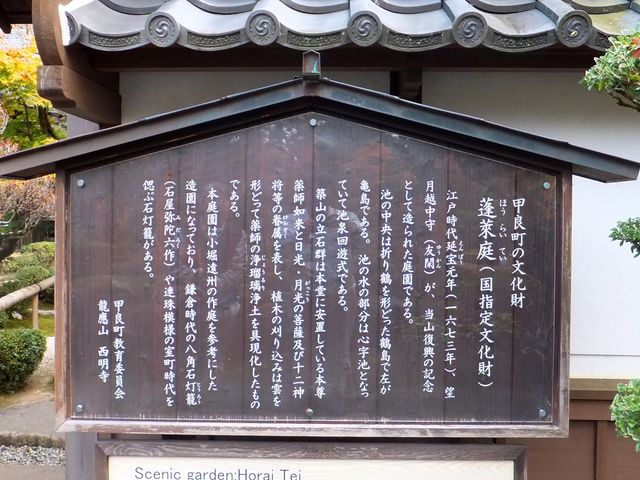 甲良町の文化財
蓬萊庭(国指定文化財)
ほうらいてい
江戸時代延宝元年(一六七三年)、望
月越中守(友閑)が、当山復興の記念
ゆうかん
として造られた庭園である。
池の中央は折り鶴を形どった鶴島で左が
亀島である。池の水の部分は心字池となっ
ていて池泉回遊式である。
築山の立石群は本堂に安置している本尊
薬師如来と日光・月光の菩薩及び十二神
がっこう
将等の眷属を表し、植木の刈り込みは雲を
けんぞく
形どって薬師の浄瑠璃浄土を具現化したもの
である。
本庭園は小堀遠州の作庭を参考にした
造園になっており、鎌倉時代の八角石灯籠
とうろう
(石屋弥陀六作)や連珠模様の室町時代を
みだろく
偲ぶ石灯籠がある。
甲良町教育委員会
龍應山 西明寺
Scenic garden:Horai Tei